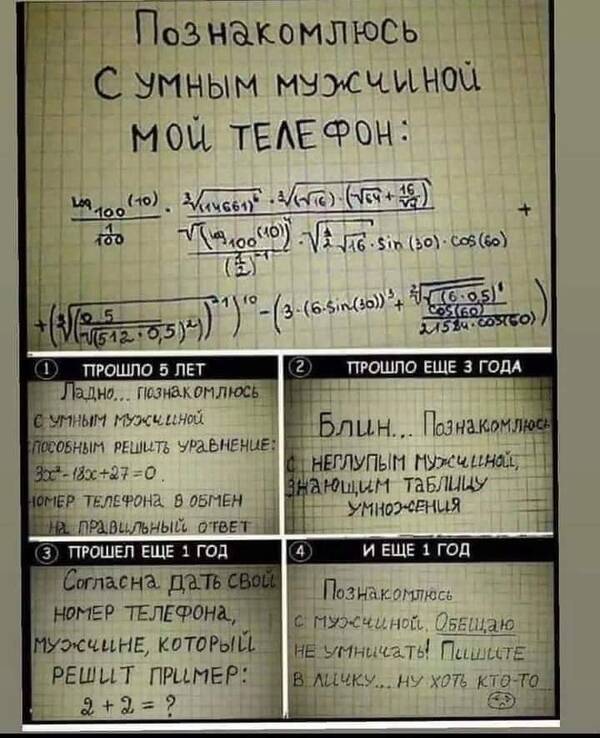 Познакомлюсь
с умным мужчиной
мой телефон:
log₁₀₀(10)
1/100
sin(30)·cos(60)
1 ПРОШЛО 5 ЛЕТ
Ладно... познакомлюсь
с умным мужчиной
способным решить уравнение:
3x²-18x+27=0.
номер телефона в обмен
на правильный ответ
2 ПРОШЛО ЕЩЕ 3 ГОДА
Блин... Познакомлюсь
с неглупым мужчиной,
знающим таблицу
умножения
3 ПРОШЕЛ ЕЩЕ 1 ГОД
Согласна дать свой
номер телефона,
мужчине, который
решит пример:
2 + 2 = ?
4 И ЕЩЕ 1 ГОД
Познакомлюсь
с мужчиной. Обещаю
не умничать! Пишите
в личку... ну хоть кто-то